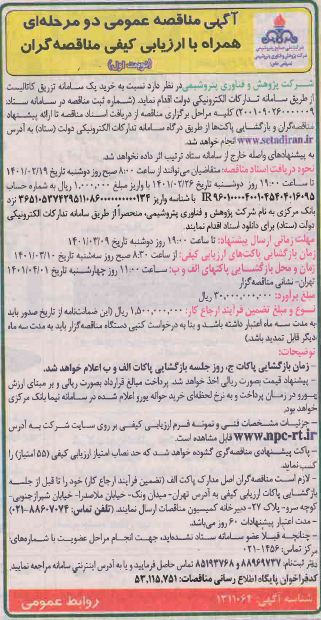 آگهی مناقصه عمومی دو مرحله‌ای
همراه با ارزیابی کیفی مناقصه‌گران
(نوبت اول)
شرکت ملی صنایع پتروشیمی
شرکت پژوهش و فناوری پتروشیمی
(سهامی خاص)
شرکت پژوهش و فناوری پتروشیمی در نظر دارد نسبت به خرید یک سامانه تزریق کاتالیست
از طریق سامانه تدارکات الکترونیکی دولت اقدام نماید. (شماره ثبت مناقصه در سامانه ستاد:
۲۰۰۱۰۹۲۶۰۰۰۰۰۹) کلیه مراحل برگزاری مناقصه از دریافت اسناد مناقصه تا ارائه پیشنهاد
مناقصه‌گران و بازگشایی پاکت‌ها از طریق درگاه سامانه تدارکات الکترونیکی دولت (ستاد) به آدرس
www.setadiran.ir انجام خواهد شد.
به پیشنهادهای واصله خارج از سامانه ستاد ترتیب اثر داده نخواهد شد.
نحوه دریافت اسناد مناقصه: متقاضیان می‌توانند از ساعت ۸:۰۰ صبح روز دوشنبه تاریخ ۱۴۰۱/۰۲/۱۹
تا ساعت ۱۹:۰۰ روز دوشنبه تاریخ ۱۴۰۱/۰۲/۲۶ با واریز مبلغ ۱,۰۰۰,۰۰۰ ریال به شماره حساب
نزد
بانک مرکزی به نام شرکت پژوهش و فناوری پتروشیمی، منحصراً از طریق سامانه تدارکات الکترونیکی
دولت (ستاد) برای دانلود اسناد اقدام نمایند.
مهلت زمانی ارسال پیشنهاد: تا ساعت ۱۹:۰۰ روز دوشنبه تاریخ ۱۴۰۱/۰۳/۰۹
زمان بازگشایی پاکت‌های ارزیابی کیفی: از ساعت ۸:۳۰ صبح روز سه‌شنبه تاریخ ۱۴۰۱/۰۳/۱۰
زمان و محل بازگشایی پاکتهای الف و ب: از ساعت ۱۱:۰۰ صبح روز چهارشنبه تاریخ ۱۴۰۱/۰۴/۰۱
تهران- نشانی مناقصه‌گزار
مبلغ برآورد: ۳۰,۰۰۰,۰۰۰,۰۰۰ ریال
نوع و مبلغ تضمین فرآیند ارجاع کار: ۱,۵۰۰,۰۰۰,۰۰۰ ریال (این ضمانت‌نامه از تاریخ صدور باید
به مدت سه ماه اعتبار داشته باشد و بنا به درخواست کتبی دستگاه مناقصه‌گزار باید به مدت سه ماه
دیگر قابل تمدید باشد)
توضیحات:
- زمان بازگشایی پاکات ج، روز جلسه بازگشایی پاکات الف و ب اعلام خواهد شد.
- پیشنهاد قیمت بصورت ریالی اخذ خواهد شد. پرداخت مبالغ قرارداد بصورت ریالی و بر مبنای ارزش
یورو در زمان پرداخت و به نرخ لحظه‌ای خرید حواله یورو اعلام شده در سامانه نیما بانک مرکزی
خواهد بود.
- جزئیات مشخصات فنی و نمونه فرم ارزیابی کیفی بر روی سایت شرکت به آدرس
www.npc-rt.ir قابل مشاهده است.
- پاکت پیشنهادی مناقصه‌گری گشوده خواهد شد که حد نصاب امتیاز ارزیابی کیفی (۵۵ امتیاز) را
کسب نماید.
- لازم است مناقصه‌گران اصل مدارک پاکت الف (تضمین فرآیند ارجاع کار) خود را تا قبل از جلسه
بازگشایی پاکات ارزیابی کیفی به آدرس تهران- میدان ونک- خیابان ملاصدرا- خیابان شیرازجنوبی-
کوچه سرو- پلاک ۲۷- دبیرخانه کمیسیون مناقصات ارسال نمایند. (تلفن تماس: ۸۸۶۰۷۰۷۴-۰۲۱)
- مدت اعتبار پیشنهادات ۶۰ روز می‌باشد.
- چنانچه قبلاً عضو سامانه ستاد نشده‌اید، جهت انجام مراحل عضویت با شماره‌های:
مرکز تماس: ۱۴۵۶-۰۲۱
دفتر ثبت‌نام ۸۸۹۶۹۷۳۷ و ۸۵۱۹۳۷۶۸ تماس حاصل فرمایید و یا به آدرس اینترنتی سامانه مراجعه نمایید.
کدفراخوان پایگاه اطلاع رسانی مناقصات: ۵۳,۱۱۵,۷۵۱
شناسه آگهی: ۱۳۱۱۰۶۴
روابط عمومی